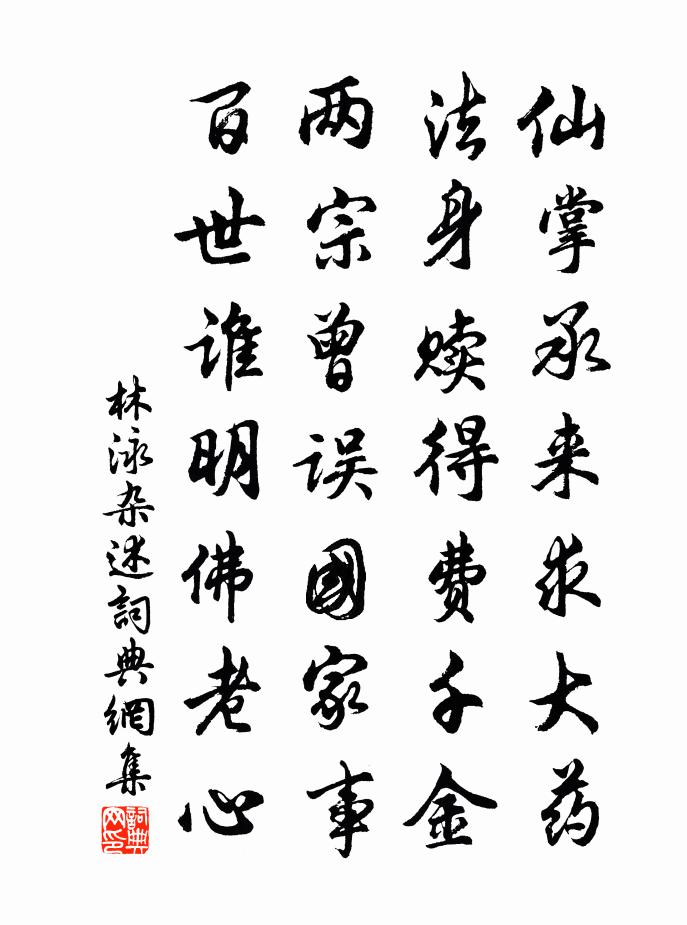 仙掌承来求大药
法身赎得费千金
两宗曾误國家事
百世谁明佛老心
林泳杂述詞典網集
詞典网印